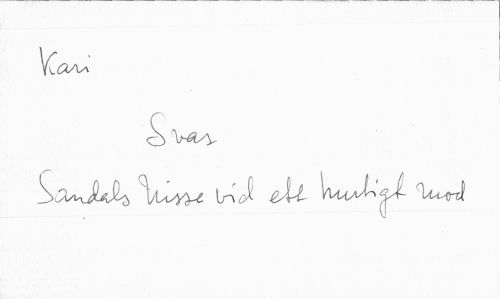 Kari
Svar
Sandals Nisse vid ett hurtigt mod